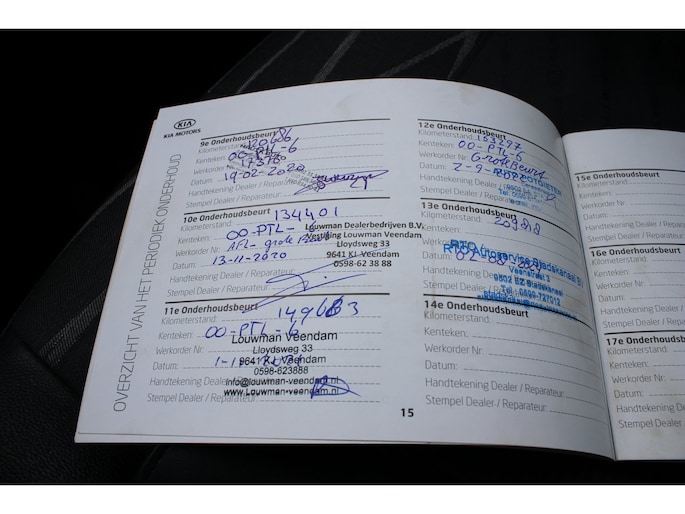 KIA
KIA MOTORS
OVERZICHT VAN HET PERIODIEK ONDERHOUD
9e Onderhoudsbeurt
Kilometerstand: 120686
Kenteken: 00-PTL-6
Werkorder Nr:
Datum: 19-02-2020
Handtekening Dealer / Reparateur:
Stempel Dealer / Reparateur:
10e Onderhoudsbeurt
Kilometerstand: 134401
Kenteken: 00-PTL-6
Werkorder Nr: AFL- grote
Datum: 13-11-2020
Handtekening Dealer / Reparateur:
Stempel Dealer / Reparateur:
Louwman Dealerbedrijven B.V.
Vestiging Louwman Veendam
Lloydsweg 33
9641 KJ Veendam
0598-62 38 88
11e Onderhoudsbeurt
Kilometerstand: 149683
Kenteken: 00-PTL-6
Werkorder Nr:
Datum:
Handtekening Dealer / Reparateur:
Stempel Dealer / Reparateur:
Louwman Veendam
Lloydsweg 33
9641 KJ Veendam
0598-623888
info@louwman-veendam.nl
www.Louwman-veendam.nl
15
12e Onderhoudsbeurt
Kilometerstand: 163297
Kenteken: 00-PTL-6
Werkorder Nr: Grote Beurt
Datum:
Handtekening Dealer / Reparateur:
Stempel Dealer / Reparateur:
13e Onderhoudsbeurt
Kilometerstand:
Kenteken:
Werkorder Nr:
Datum:
Handtekening Dealer / Reparateur:
Stempel Dealer / Reparateur:
RTO Autoservice Stadskanaal
Veenstraat 3
9502 EZ Stadskanaal
Tel: 0599-727012
14e Onderhoudsbeurt
Kilometerstand:
Kenteken:
Werkorder Nr:
Datum:
Handtekening Dealer / Reparateur:
Stempel Dealer / Reparateur:
15e Onderhoudsb
Kilometerstand:
Kenteken:
Werkorder Nr:
Datum:
Handtekening Dealer
Stempel Dealer / Rep
16e Onderhoudsb
Kilometerstand:
Kenteken:
Werkorder Nr:
Datum:
Handtekening Dealer
Stempel Dealer / Re
17e Onderhoudsb
Kilometerstand:
Kenteken:
Werkorder Nr:
Datum:
Handtekening Deal
Stempel Dealer / R